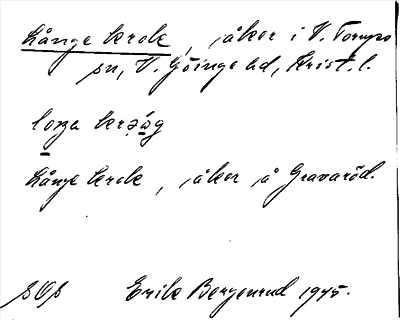 Långe krok, åker i V. Torups
sn, V. Göinge hd, Krist. l.
Långe krok, åker å Gravaröd.
Erik Bergenrud 1945.